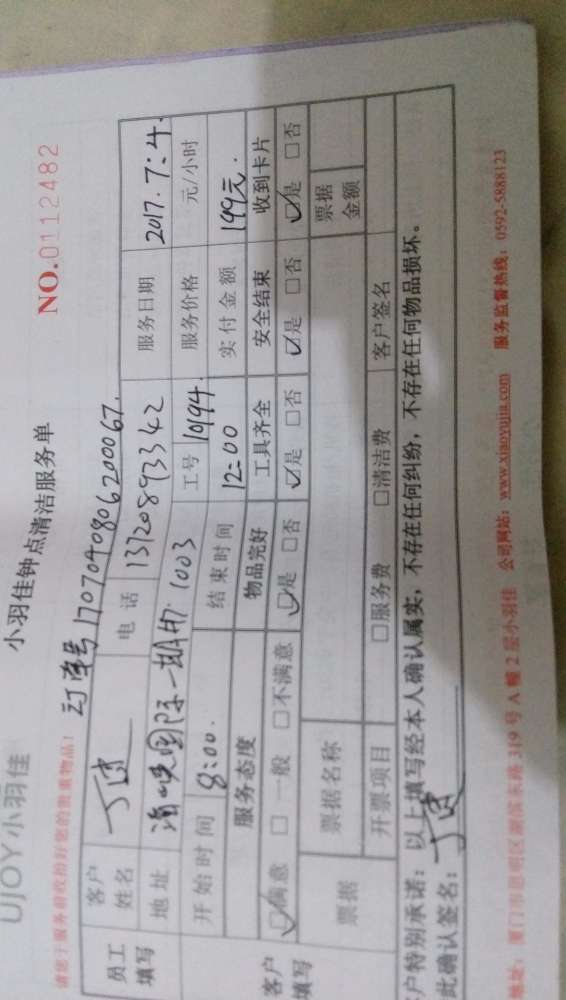 UJOY小羽佳
小羽佳钟点清洁服务单
NO.0112482
请您于服务前收拾好您的贵重物品！
订单号170704080620067.
员工填写
客户姓名
电话 13720893342
服务日期 2017.7:4.
地址 海峡国际一期 1003
工号 10194.
服务价格 元/小时
开始时间 8:00.
结束时间 12:00
实付金额 199元.
客户填写
服务态度 物品完好 工具齐全 安全结束 收到卡片
☑满意 □一般 □不满意 ☑是 □否 ☑是 □否 ☑是 □否 ☑是 □否
票据 票据名称 票据金额
开票项目 □服务费 □清洁费 客户签名
户特别承诺：以上填写经本人确认属实，不存在任何纠纷，不存在任何物品损坏。
此确认签名：
地址：厦门市思明区湖滨东路319号A幢2层小羽佳 公司网站：www.xiaoyujia.com 服务监督热线：0592-5888123